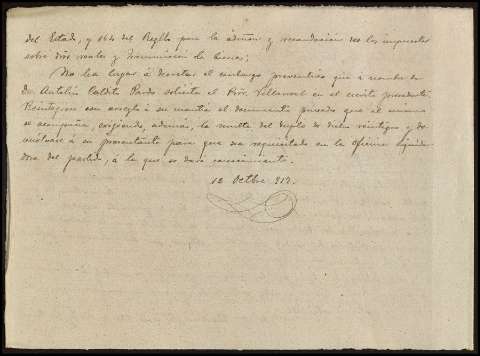 del Estado, y 164 del Reglto para la admón y recaudación de los impuestos
sobre dros reales y transmisión de bienes;
No ha lugar á decretar el embargo preventivo que á nombre de
Dn. Antolín Pardo solicita el Pror. Villarroel en el escrito precedente
Reintégrese con arreglo á su cuantía el documento privado que al mismo
se acompaña, exigiendo, además, la multa del duplo de dicho reintegro y de
á su presentante para que sea requisitado en la oficina liquida-
dora del partido, á la que se dará conocimiento.
12 Octbre 917.